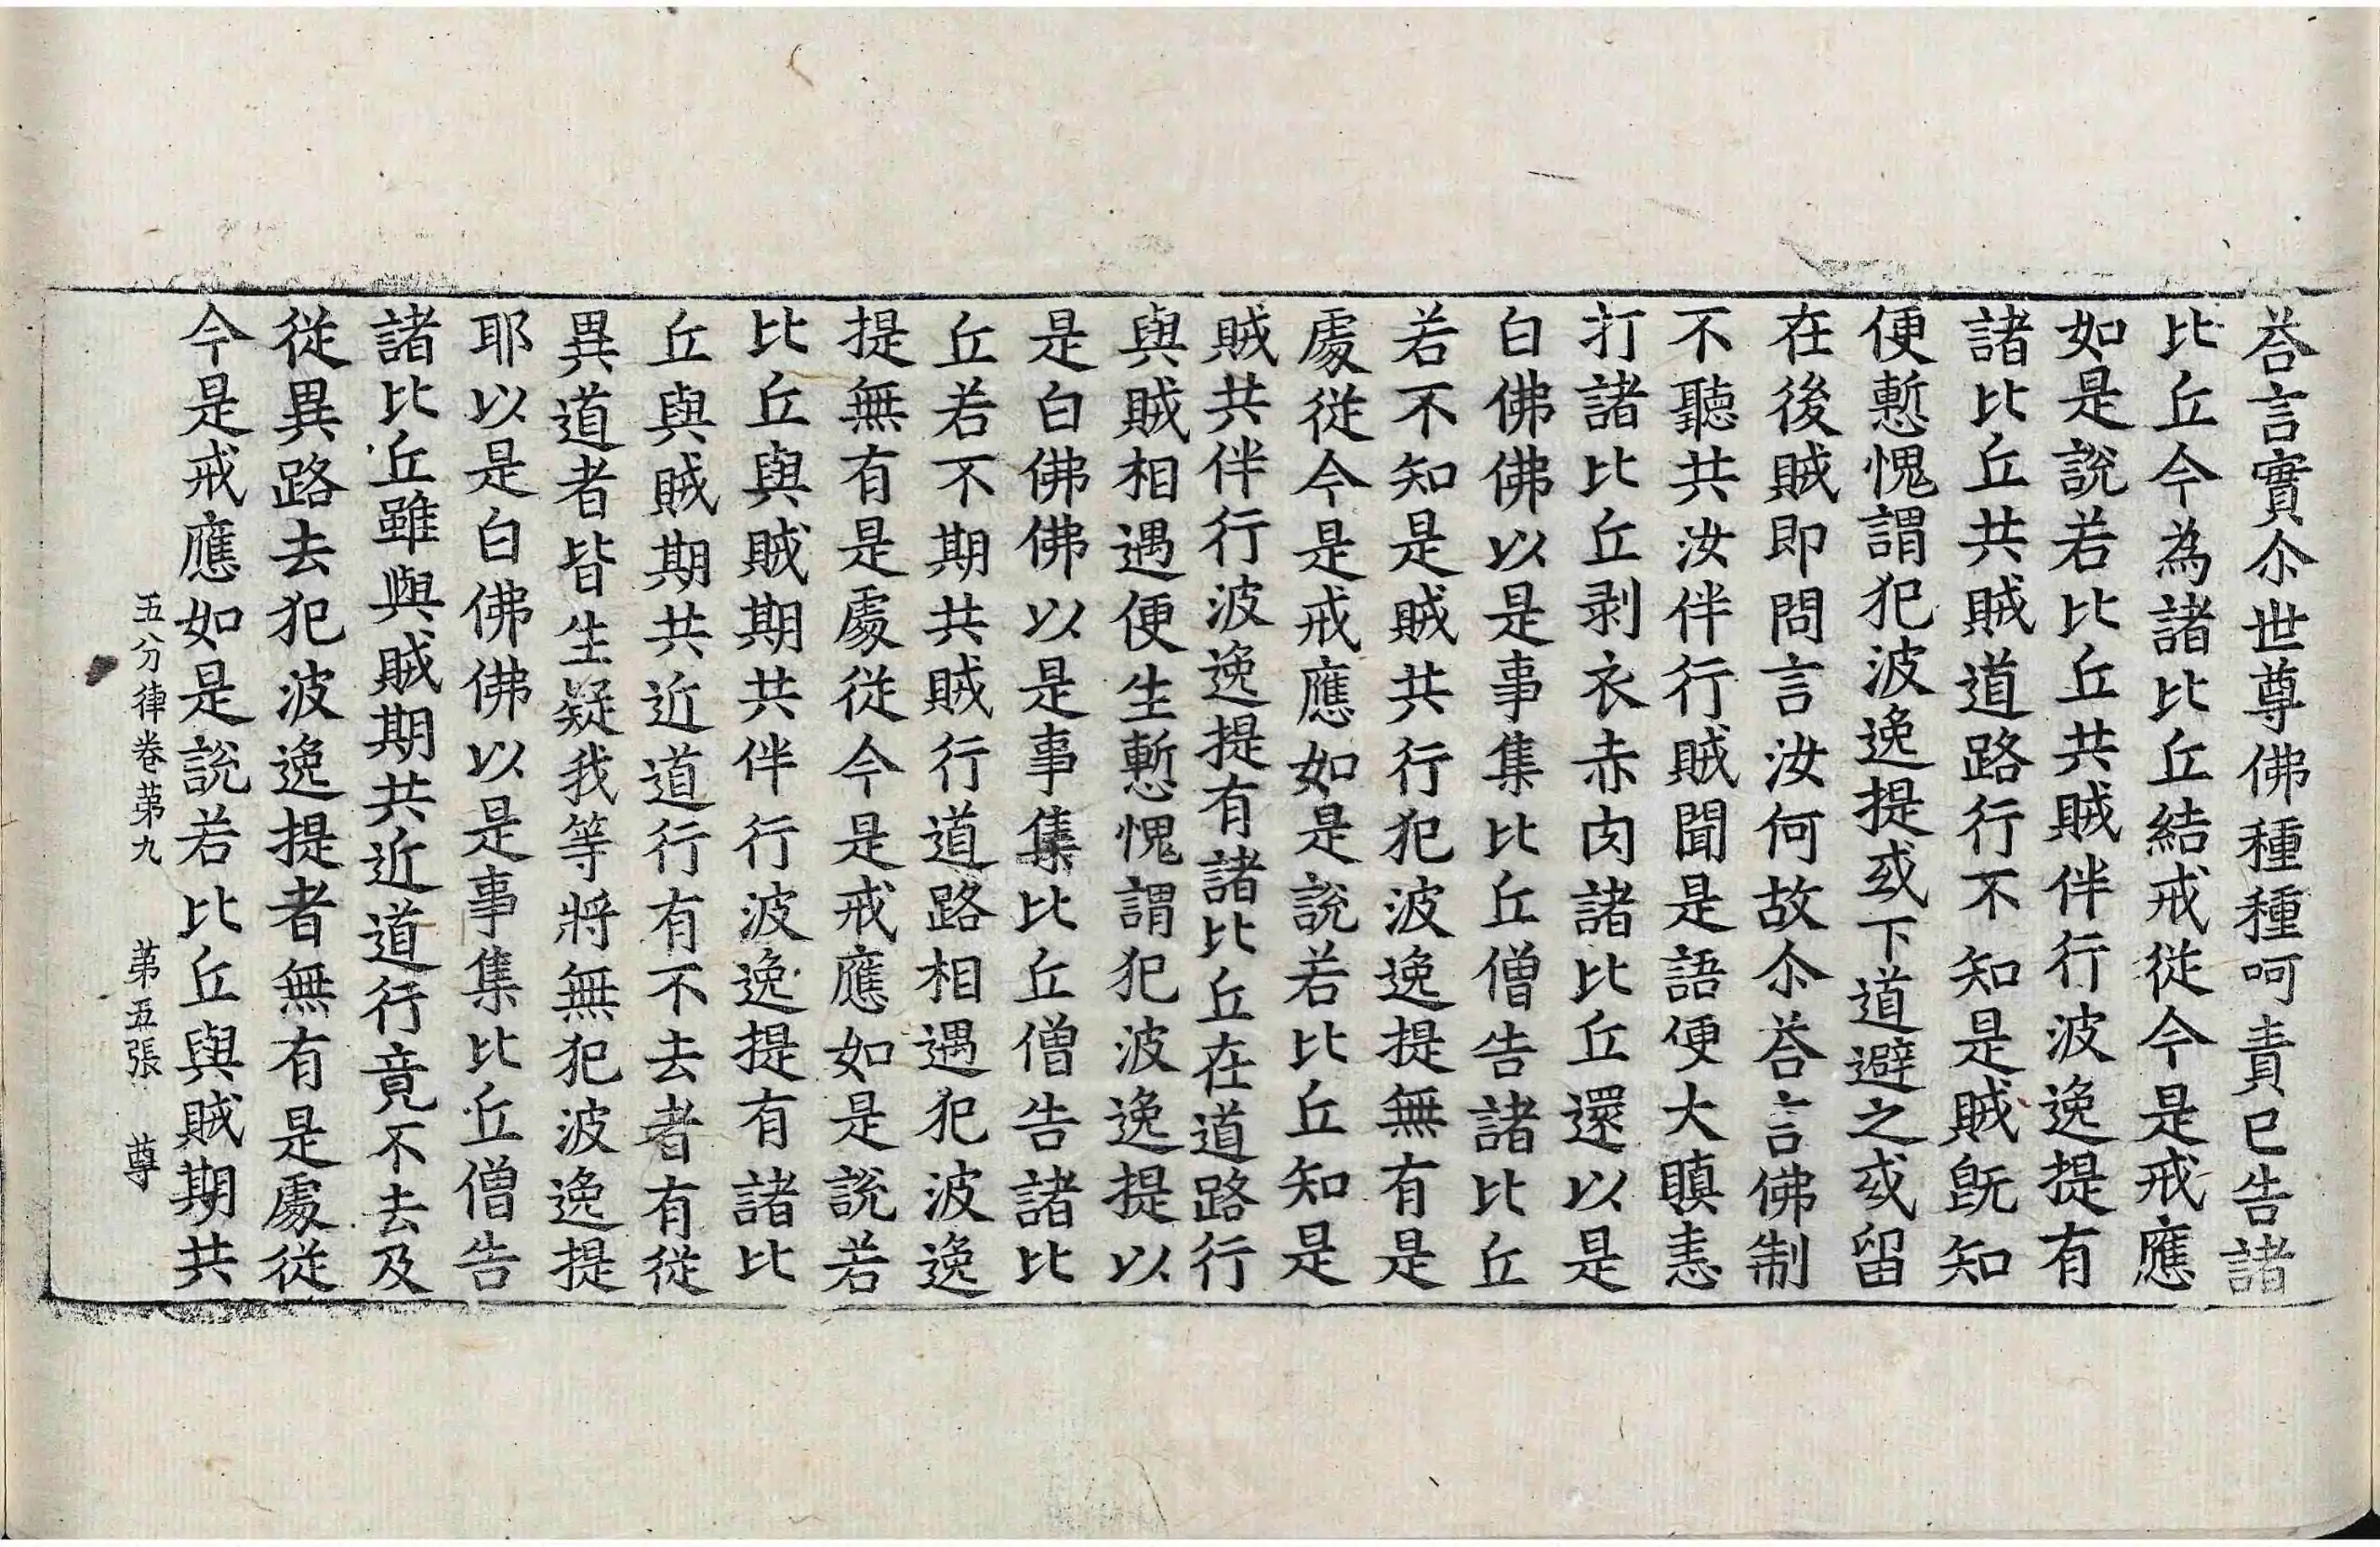 荅言實尒世尊佛種種呵責已告諸
比丘今為諸比丘結戒從今是戒應
如是說若比丘共賊伴行波逸提有
諸比丘共賊道路行不知是賊旣知
便慙愧謂犯波逸提或下道避之或留
在後賊即問言汝何故尒荅言佛制
不聽共汝伴行賊聞是語便大瞋恚
打諸比丘剥衣赤肉諸比丘還以是
白佛佛以是事集比丘僧告諸比丘
若不知是賊共行犯波逸提無有是
處從今是戒應如是說若比丘知是
賊共伴行波逸提有諸比丘在道路行
與賊相遇便生慙愧謂犯波逸提以
是白佛佛以是事集比丘僧告諸比
丘若不期共賊行道路相遇犯波逸
提無有是處從今是戒應如是說若
比丘與賊期共伴行波逸提有諸比
丘與賊期共近道行有不去者有從
異道者皆生疑我等將無犯波逸提
耶以是白佛佛以是事集比丘僧告
諸比丘雖與賊期共近道行竟不去及
從異路去犯波逸提者無有是處從
今是戒應如是說若比丘與賊期共
五分律卷第九 第五張 尊